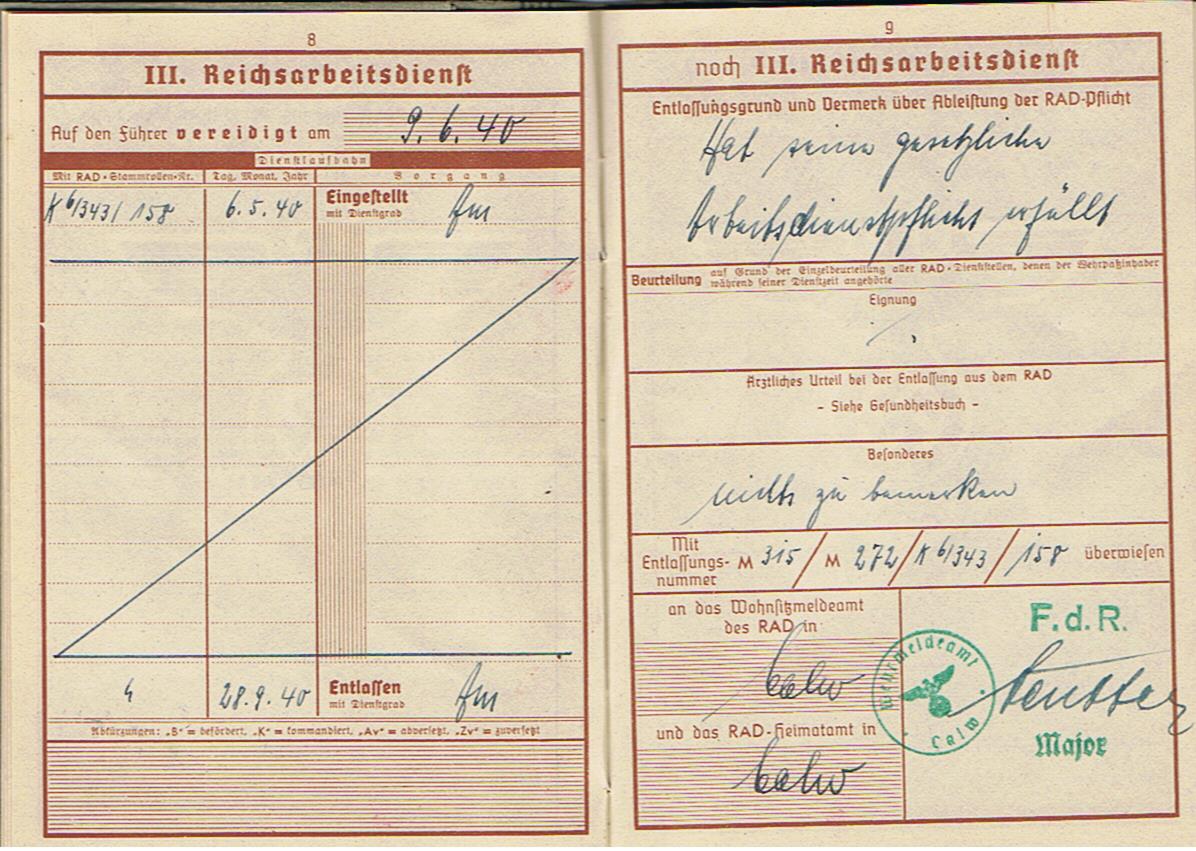 8
III. Reichsarbeitsdienst
Auf den Führer vereidigt am 9. 6. 40
Dienstlaufbahn
Mit RAD-Stammrollen-Nr. Tag, Monat, Jahr Vorgang
K 6/343/ 158 6. 5. 40 Eingestellt
mit Dienstgrad
28. 9. 40 Entlassen
mit Dienstgrad
Abkürzungen: „B“ = befördert, „K“ = kommandiert, „Av“ = abversetzt, „Zv“ = zuversetzt
9
noch III. Reichsarbeitsdienst
Entlassungsgrund und Vermerk über Ableistung der RAD-Pflicht
Hat seine gesetzliche
Arbeitsdienstpflicht erfüllt
Beurteilung auf Grund der Einzelbeurteilung aller RAD-Dienststellen, denen der Wehrpaßinhaber
während seiner Dienstzeit angehörte
Eignung
Ärztliches Urteil bei der Entlassung aus dem RAD
- Siehe Gesundheitsbuch -
Besonderes
nichts zu bemerken
Mit
Entlassungs-
nummer M 315 / M 272 / K 6/343 / 158 überwiesen
an das Wohnsitzmeldeamt
des RAD in
Calw
und das RAD-Heimatamt in
Calw
Wehrmeldeamt
Calw
F. d. R.
Major